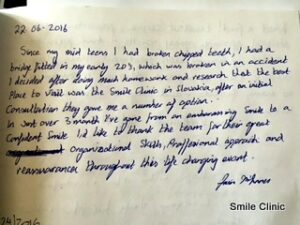 22-06-2016
Since my mid teens I had broken chipped teeth, I had a
bridge fitted in my early 20s, which was broken in an accident
I decided after doing much homework and research that the best
Place to visit was the Smile Clinic in Slovakia, after an initial
Consultation they gave me a number of option.
In Just over 3 month I've gone from an embarrassing Smile to a
Confident Smile I'd like to thank the team for their great
organizational Skills, Proffesional approach and
reassurances throughout this life changing event.
24/2016
Smile Clinic